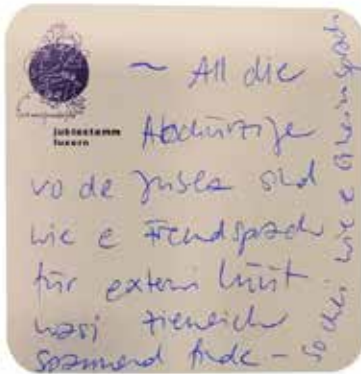 jublastamm
luzern
~ All die
Abchürzige
vo de Jubla sind
wie e Fremdsprach
für externi Lüüt
wasi ziemlich
spannend finde –
so chli wie e Gheimsprach